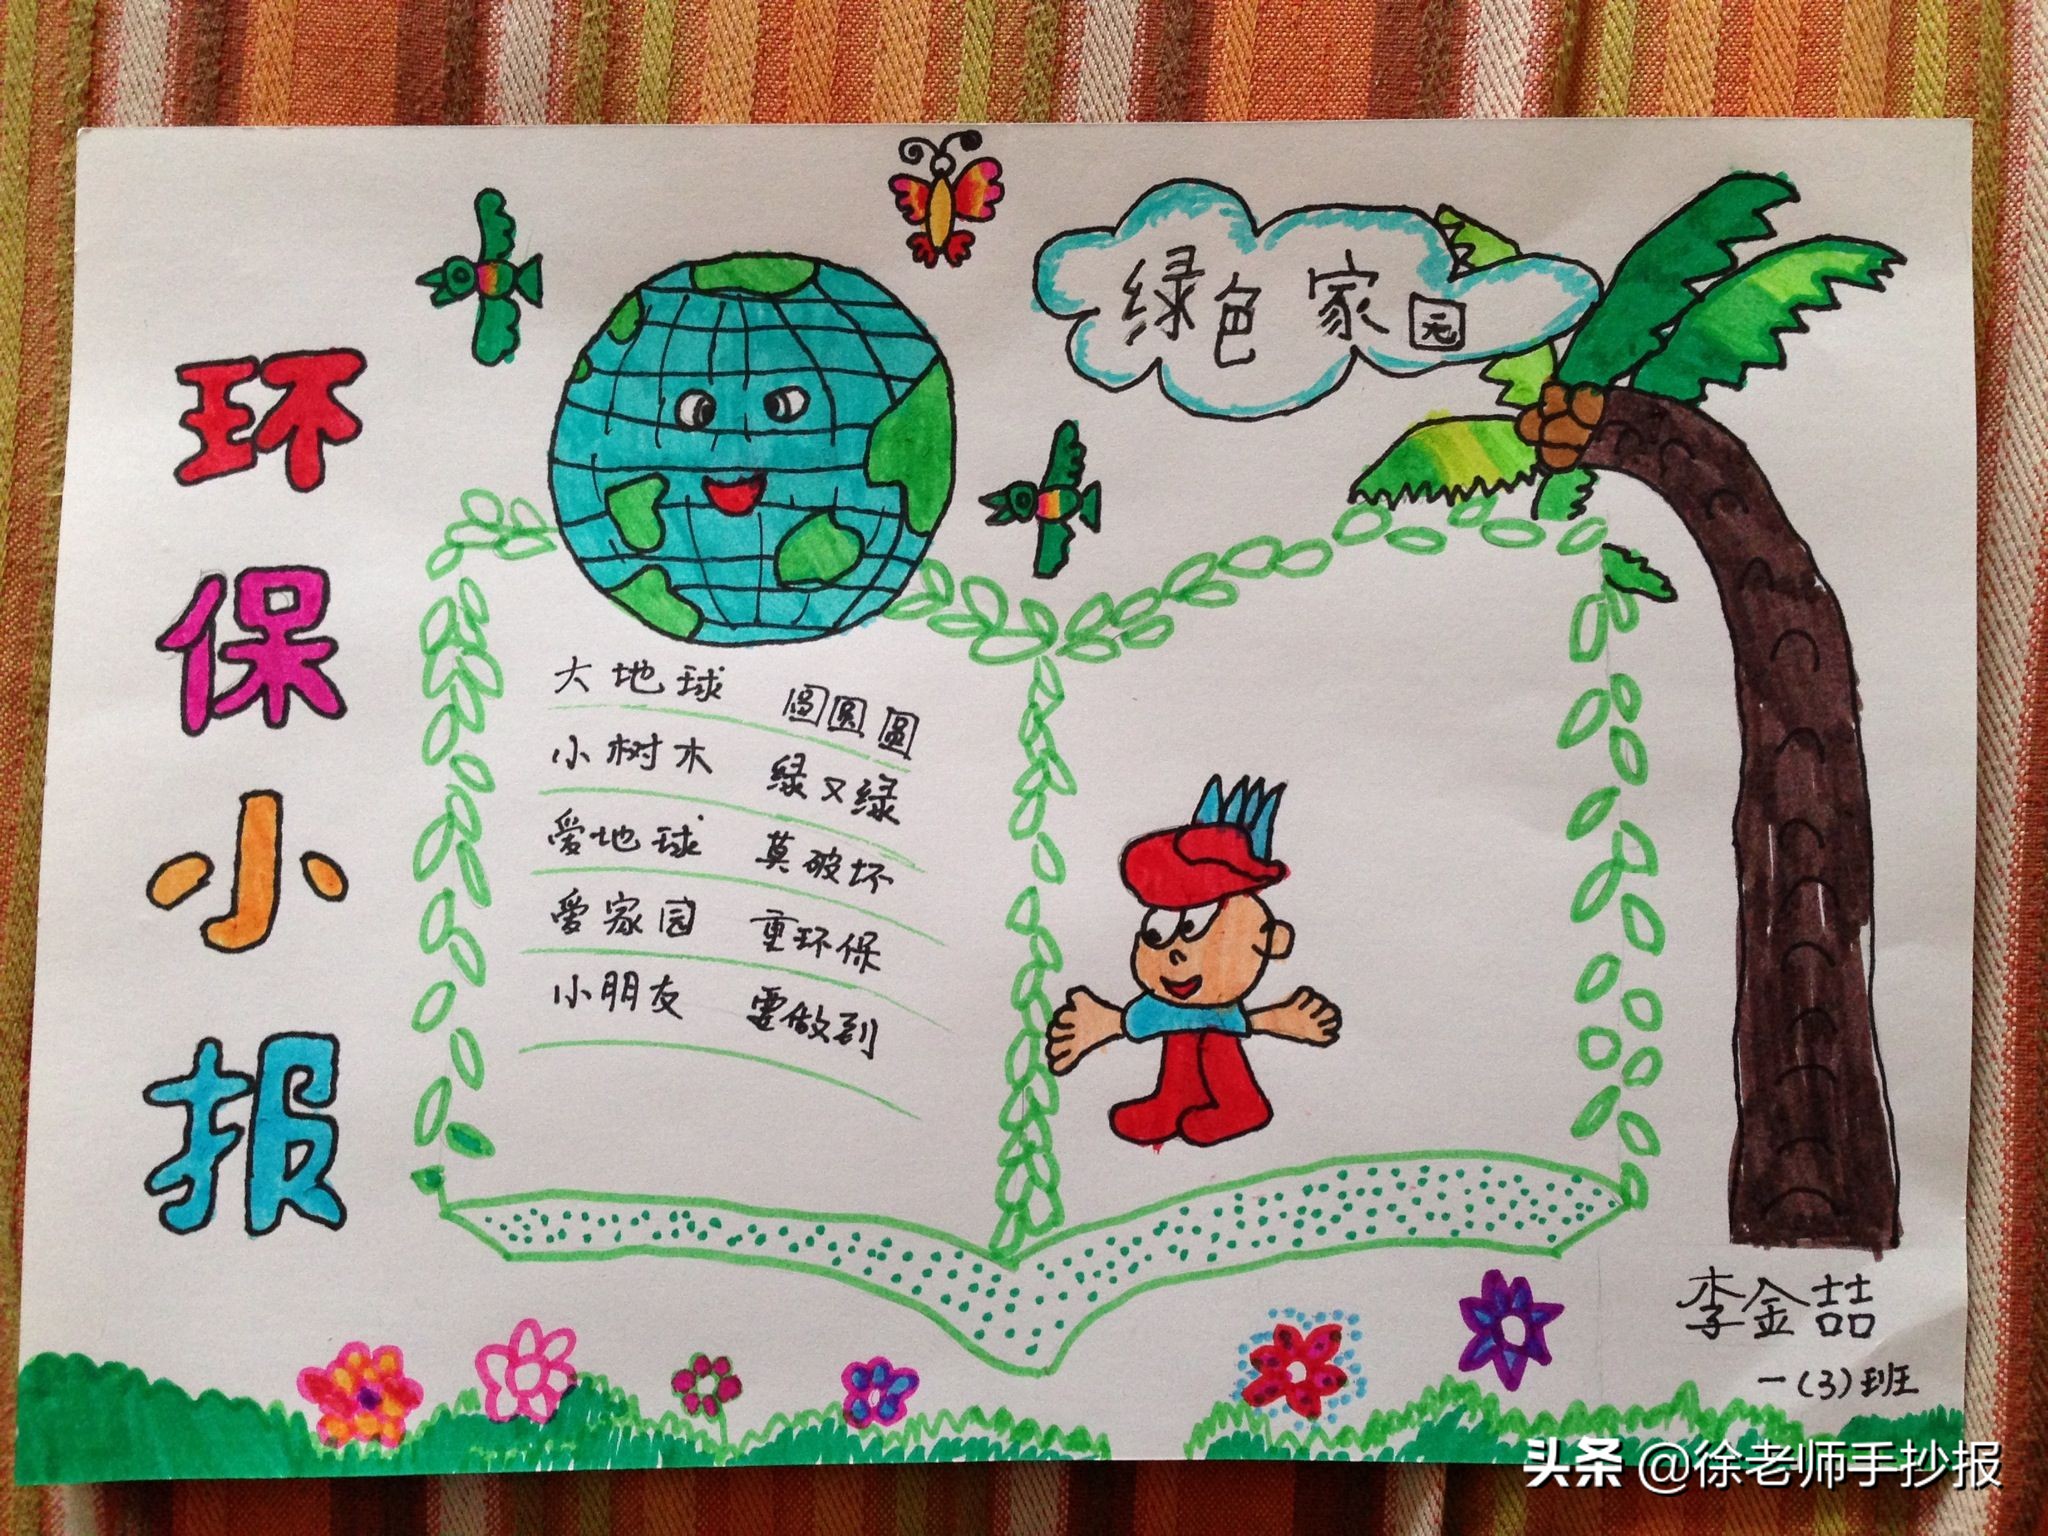 环保小报
绿色家园
大地球 圆圆圆
小树木 绿又绿
爱地球 莫破坏
爱家园 重环保
小朋友 要做到
李金喆
一(3)班
头条 @徐老师手抄报